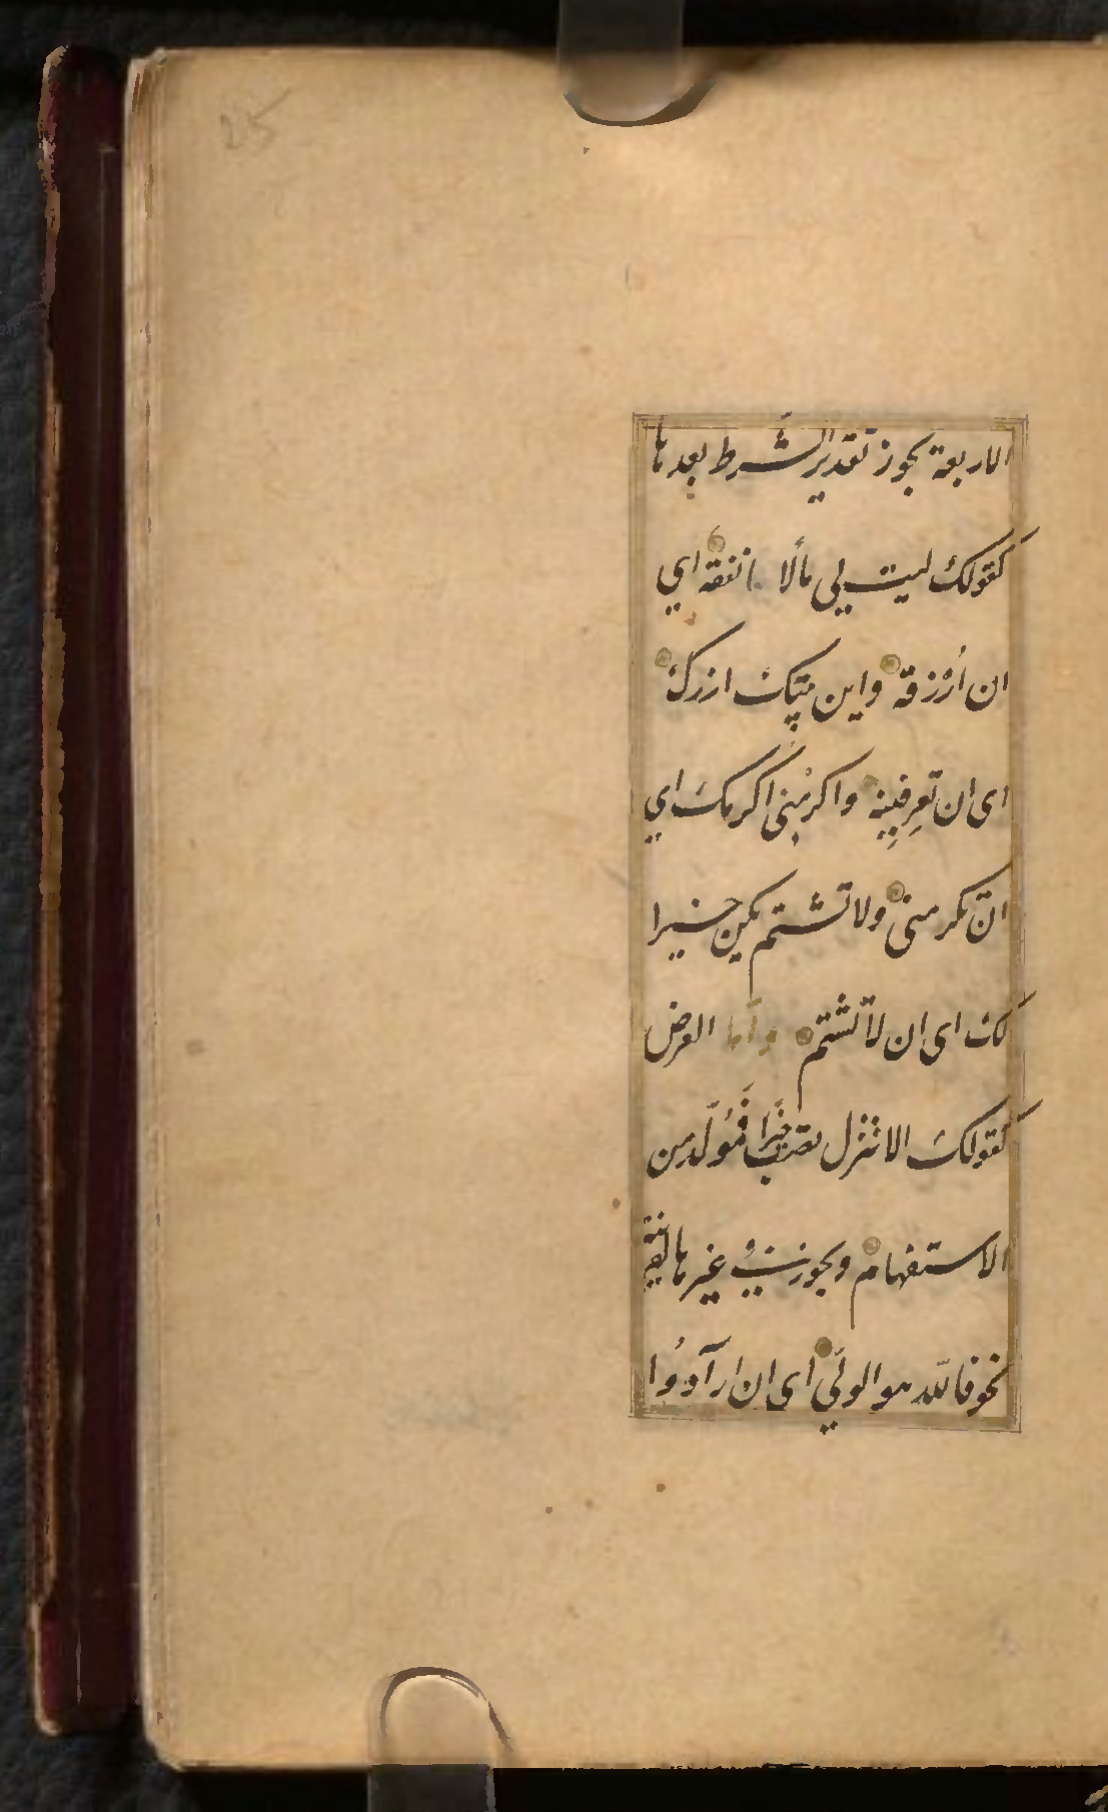 25
الاربعة يجوز تقدير الشرط بعدها
كقولك ليت لي مالا انفقه اي
ان اُرْزقه واين بيتك ازرك
اى ان تعرِفنِيه واكرمْنى اكرمك اي
ان تكرمنى ولا تشتم يكن خيرا
لك اى ان لا تشتم وأما العرض
كقولك الا تنزل تصب خيرًا فمُولّد من
الاستفهام ويجوز في غيرها لقرينة
نحو فالله هو الولي اى ان ارادُوا